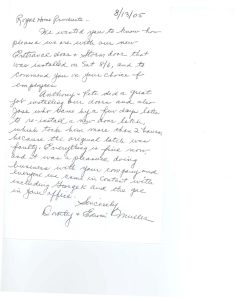 8/13/05
Home Products -
We wanted you to know how
pleased we are with our new
Entrance door & Storm door that
was installed on Sat 8/6, and to
commend you in your choice of
employees.
Anthony & Pete did a great
job installing our doors and also
Jose who came by a few days later
to re-install a new door latch,
which took him more than 2 hours,
because the original latch was
faulty. Everything is fine now
and it was a pleasure doing
business with your company and
everyone we came in contact with
including and the gal
in your office.
Sincerely
Dorothy & Edwin Mueller